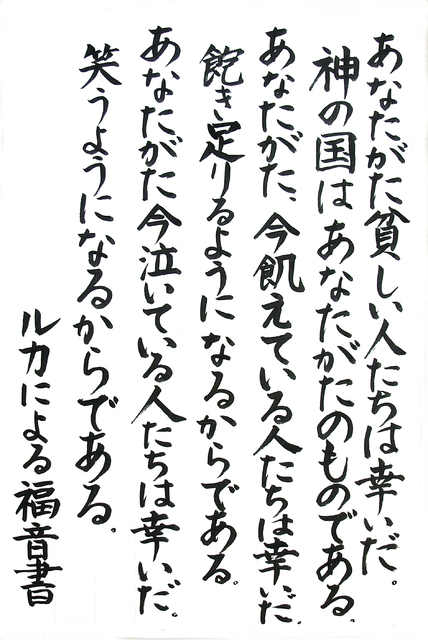 あなたがた貧しい人たちは幸いだ。
神の国はあなたがたのものである。
あなたがた、今飢えている人たちは幸いだ。
飽き足りるようになるからである。
あなたがた今泣いている人たちは幸いだ。
笑うようになるからである。
ルカによる福音書